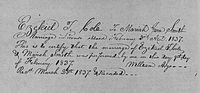 Ezekiel T. Cole To Mariah Jane Smith
Marriage License issued February 2nd 1837.
This is to certify that the marriage of Ezekiel T Cole
& Mariah Smith was performed by me on the day
of February 1837.
William
Rec'd March 20th 1837 & Recorded